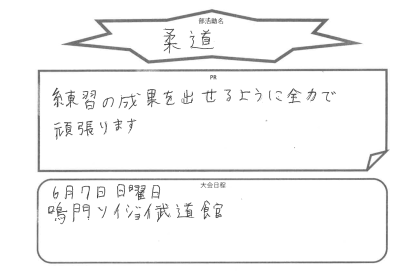 部活動名
柔道
PR
練習の成果を出せるように全力で
頑張ります
大会日程
6月7日日曜日
鳴門ソイジョイ武道館